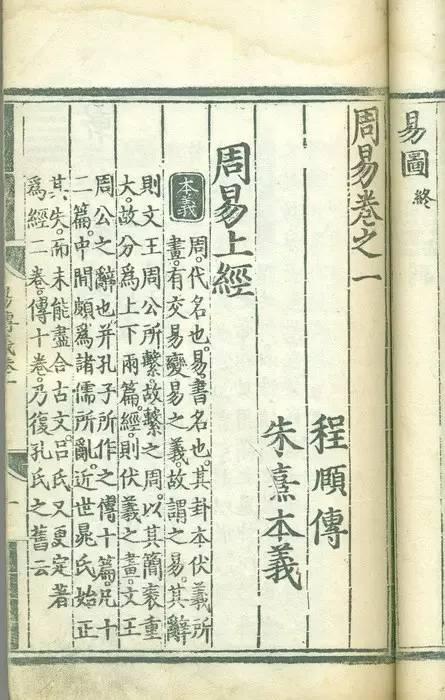 易圖終
周易卷之一
程頤傳
朱熹本義
周易上經
本義
周。代名也。易。書名也。其卦本伏羲所
畫。有交易變易之義。故謂之易。其辭
則文王周公所繫。故繫之周。以其簡袠重
大。故分爲上下兩篇。經。則伏羲之畫。文王
周公之辭也。并孔子所作之傳十篇。凡十
二篇。中間頗爲諸儒所亂。近世晁氏始正
其失。而未能盡合古文。呂氏又更定著
爲經二卷。傳十卷。乃復孔氏之舊云